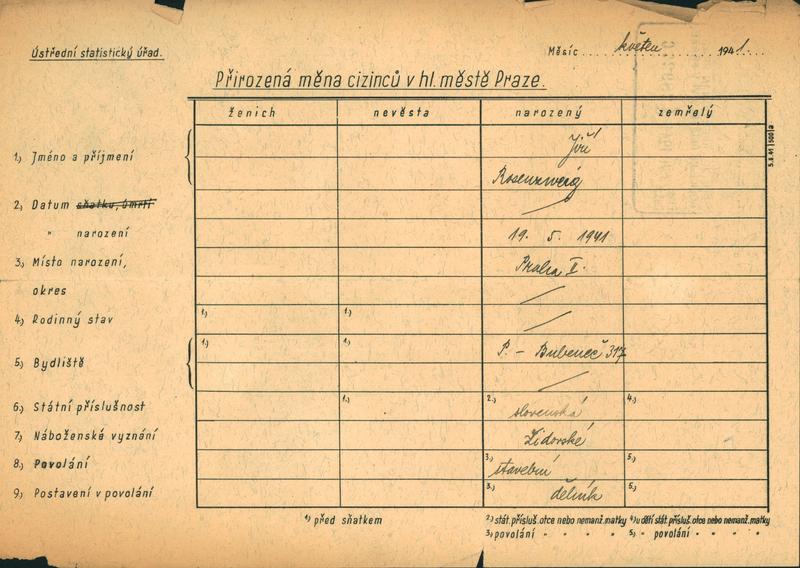 Ústřední statistický úřad.
Měsíc květen 1941.
Přirozená měna cizinců v hl. městě Praze.
ženich nevěsta narozený zemřelý
1.) Jméno a příjmení Jiří
Rosenzweig
2.) Datum sňatku, úmrtí
" narození 19. 5. 1941
3.) Místo narození, Praha II.
okres
4.) Rodinný stav 1.) 1.)
5.) Bydliště 1.) 1.) P. - Bubeneč 317
6.) Státní příslušnost 1.) 2.) slovenská 4.)
7.) Náboženské vyznání Židovské
8.) Povolání 3.) stavební 5.)
9.) Postavení v povolání 3.) dělník 5.)
1.) před sňatkem 2.) stát. přísluš. otce nebo nemanž. matky 4.) u dětí stát. přísluš. otce nebo nemanž. matky
3.) povolání " " " " 5.) povolání " " " "